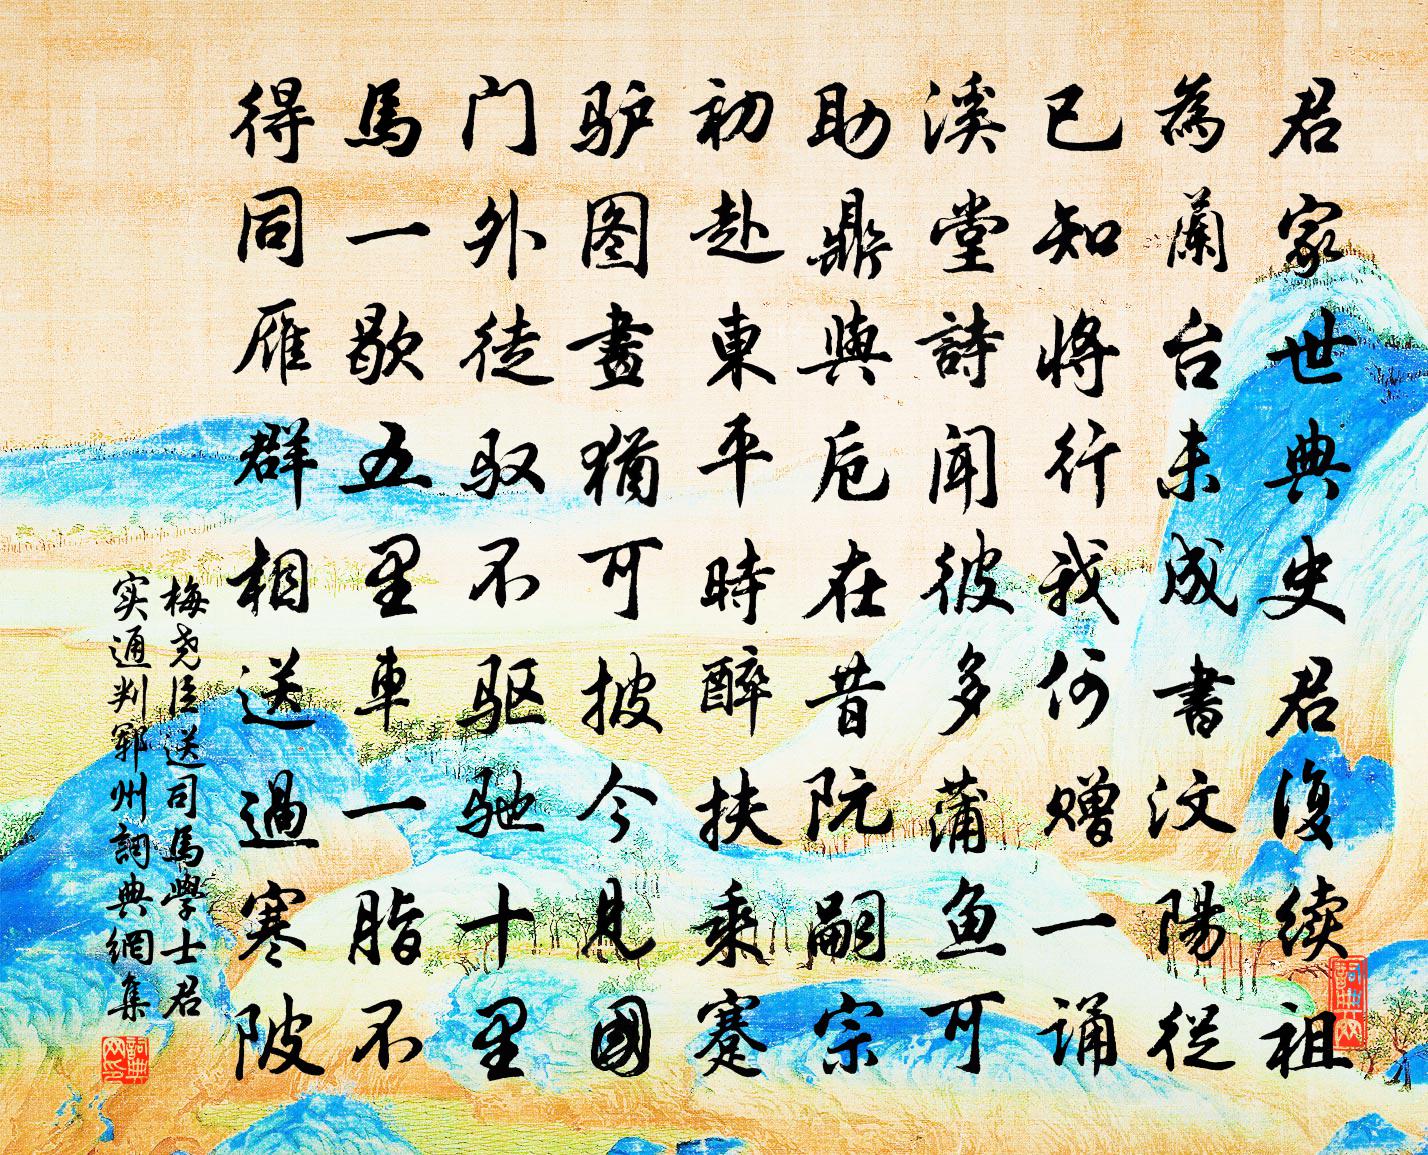 君家世典史君復续祖
為蘭台未成書汶陽從
已知将行我何赠一诵
溪堂詩闻彼多蒲鱼可
助鼎與卮在昔阮嗣宗
初赴東平時醉扶乘蹇
驴图畫猶可披今見國
门外徒驭不驱驰十里
馬一歇五里車一脂不
得同雁群相送過寒陂
梅尧臣送司馬學士君
实通判郓州詞典網集